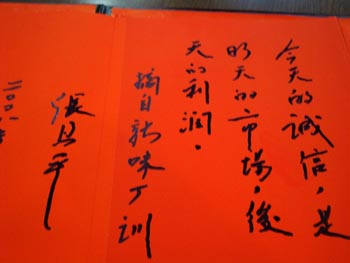 今天的誠信，是
明天的市場，後
天的利润。
摘自新味丁训
張
二〇〇